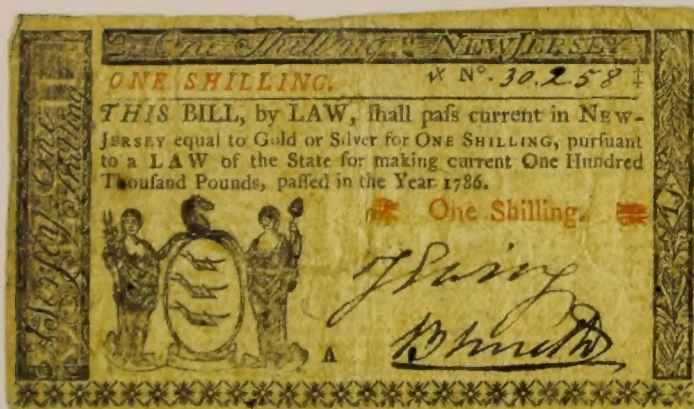 One Shilling. NEW JERSEY
ONE SHILLING. Nº. 30.258
THIS BILL, by LAW, ſhall paſs current in NEW-
JERSEY equal to Gold or Silver for ONE SHILLING, purſuant
to a LAW of the State for making current One Hundred
Thouſand Pounds, paſſed in the Year 1786.
One Shilling.
A